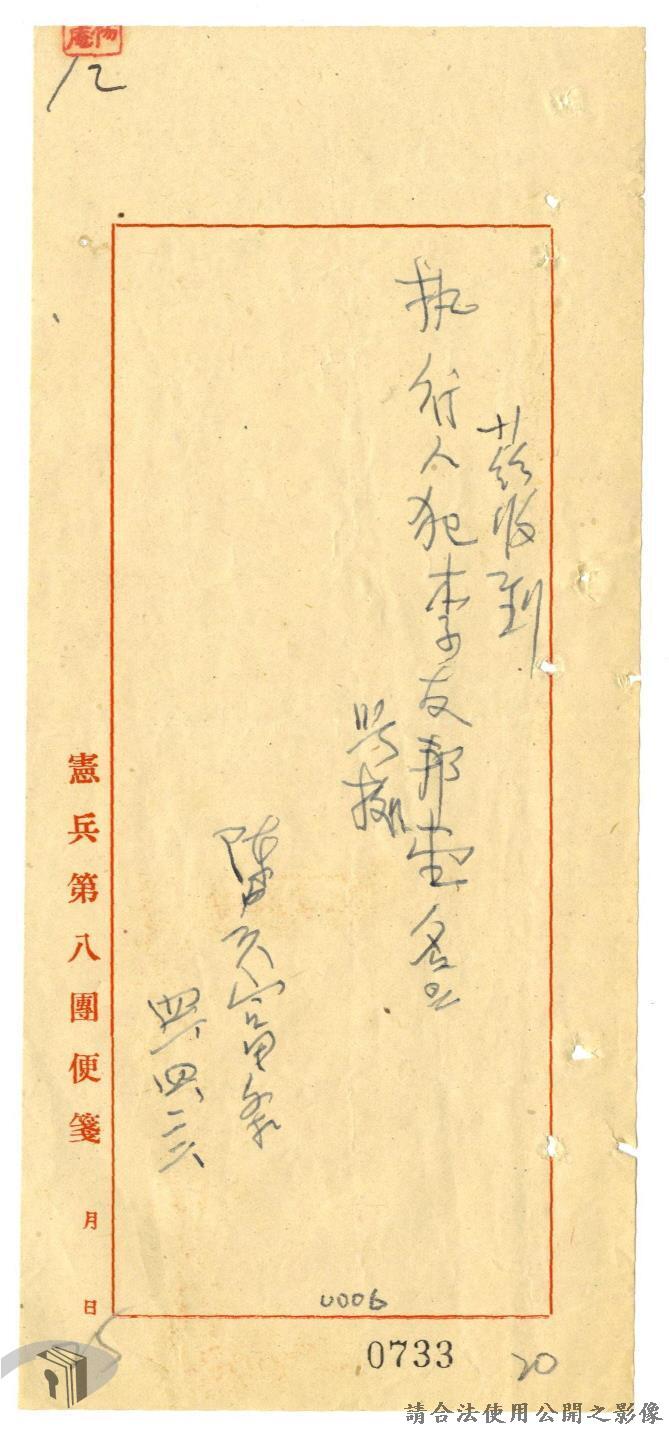 茲收到
执行人犯李友邦壹名正
此据
陳
四一、四、二二
憲兵第八團便箋　月　日
12
0006
0733
20
請合法使用公開之影像